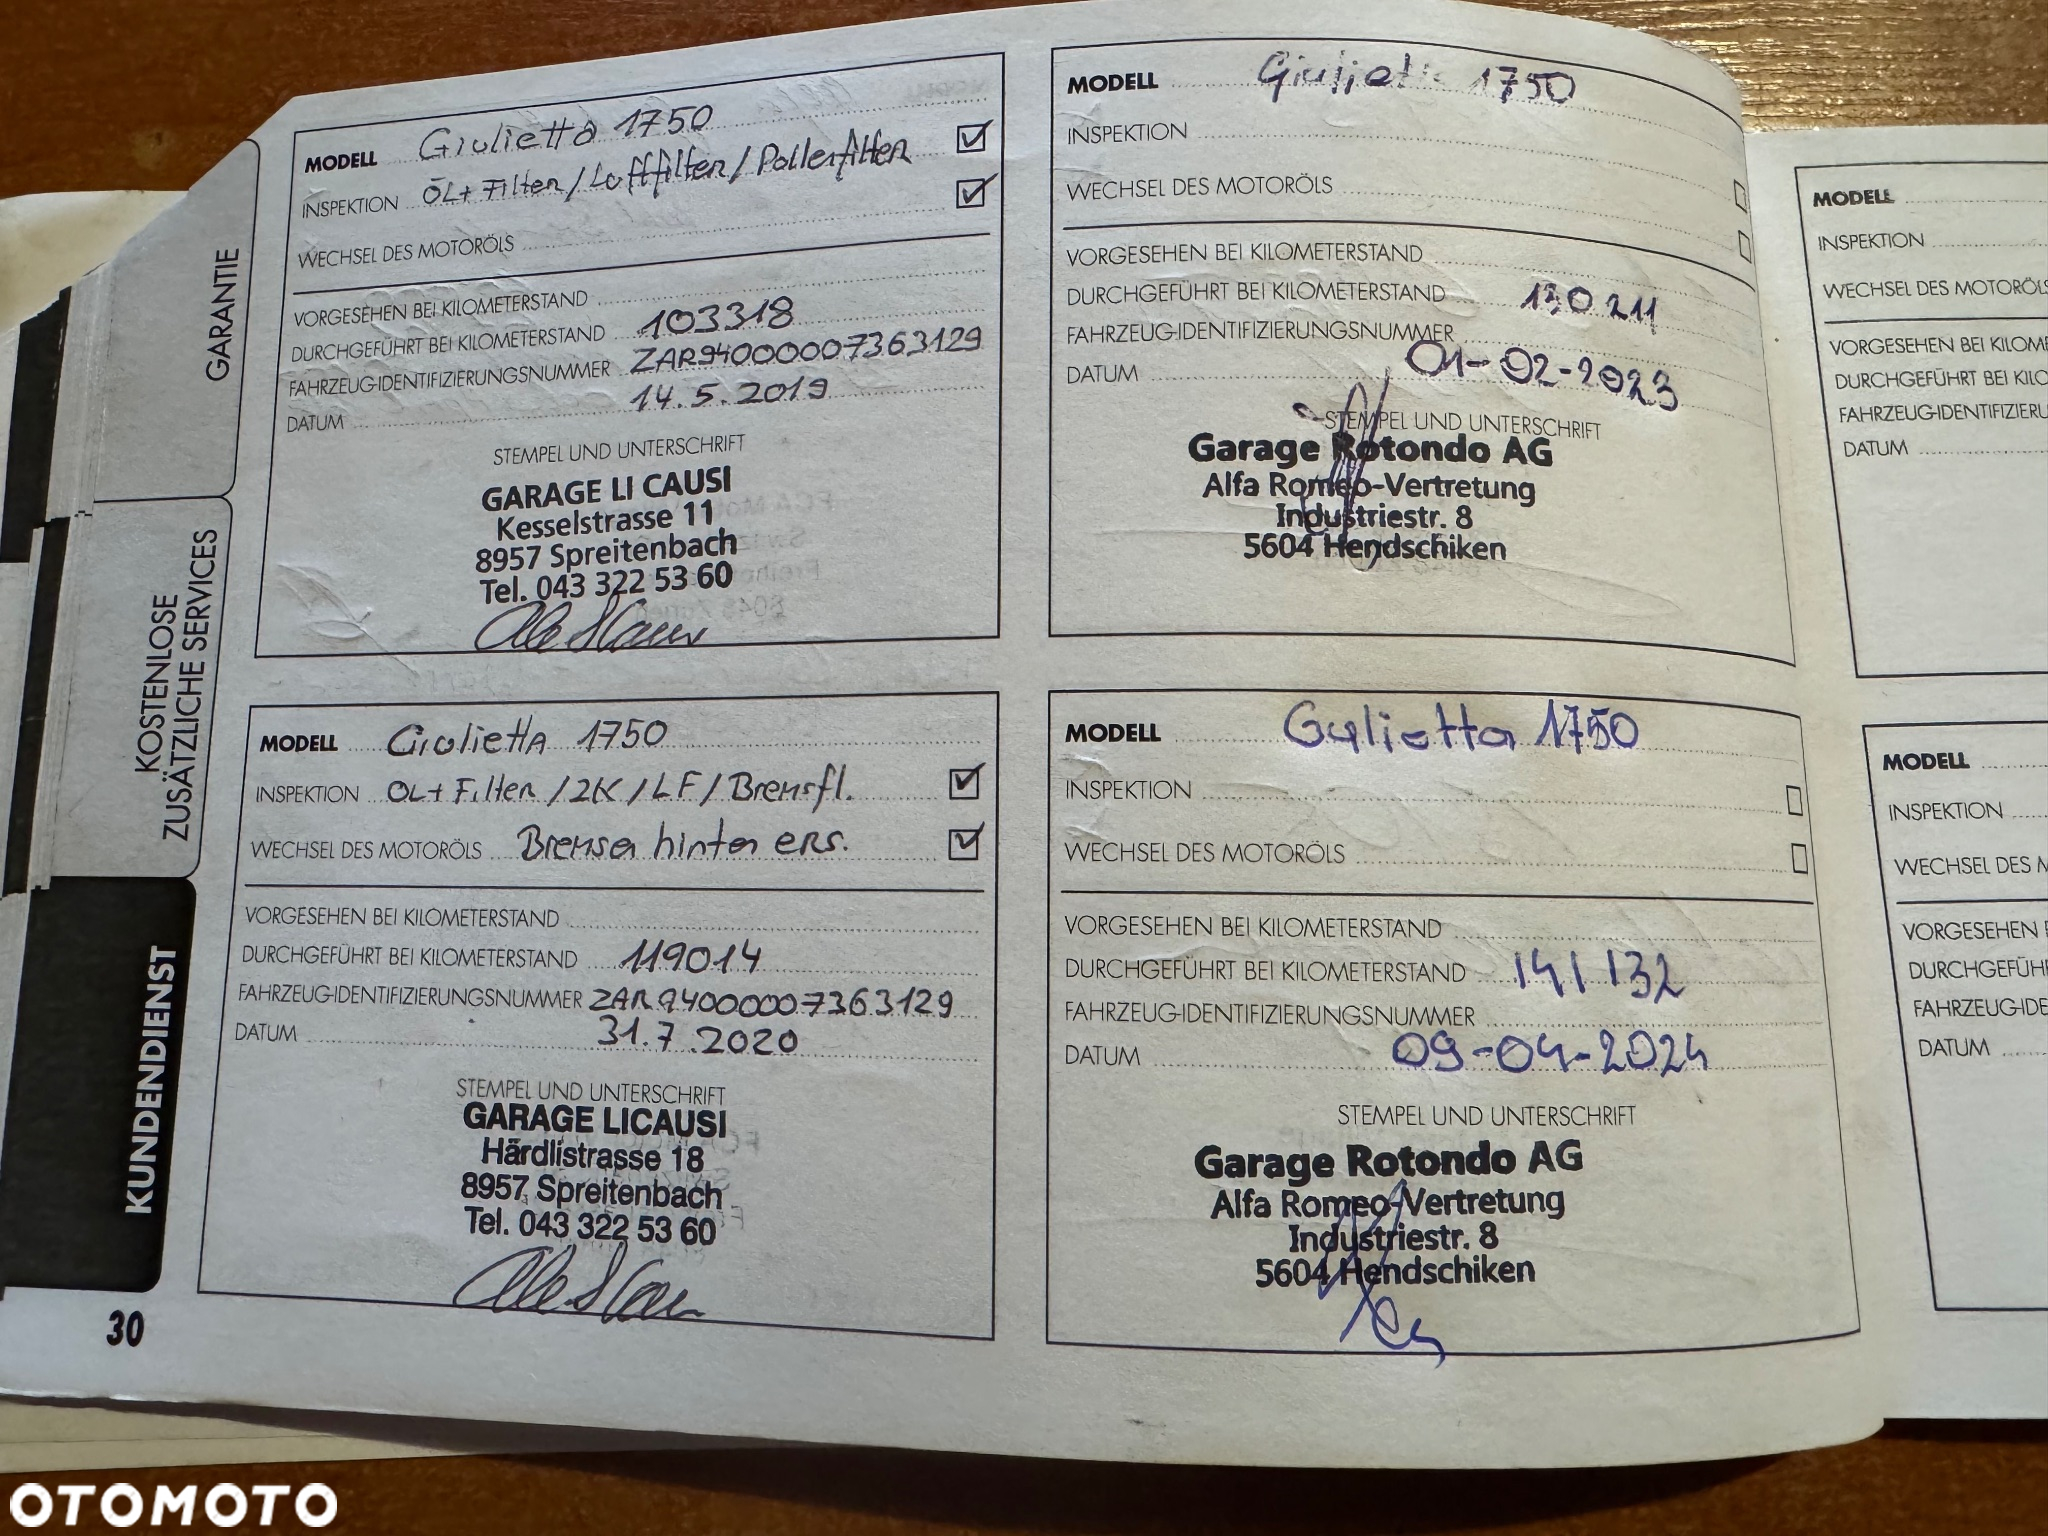 GARANTIE
KOSTENLOSE
ZUSÄTZLICHE SERVICES
KUNDENDIENST
MODELL Giulietta 1750
INSPEKTION ÖL+ Filter/Luftfilter/Pollenfilter
WECHSEL DES MOTORÖLS
VORGESEHEN BEI KILOMETERSTAND
DURCHGEFÜHRT BEI KILOMETERSTAND 103318
FAHRZEUG-IDENTIFIZIERUNGSNUMMER ZAR94000007363129
DATUM 14.5.2019
STEMPEL UND UNTERSCHRIFT
GARAGE LI CAUSI
Kesselstrasse 11
8957 Spreitenbach
Tel. 043 322 53 60
MODELL Giulietta 1750
INSPEKTION ÖL+ Filter /ZK/LF/Bremsfl.
WECHSEL DES MOTORÖLS Bremsen hinten ers.
VORGESEHEN BEI KILOMETERSTAND
DURCHGEFÜHRT BEI KILOMETERSTAND 119014
FAHRZEUG-IDENTIFIZIERUNGSNUMMER ZAR94000007363129
DATUM 31.7.2020
STEMPEL UND UNTERSCHRIFT
GARAGE LICAUSI
Härdlistrasse 18
8957 Spreitenbach
Tel. 043 322 53 60
30
MODELL Giulietta 1750
INSPEKTION
WECHSEL DES MOTORÖLS
VORGESEHEN BEI KILOMETERSTAND
DURCHGEFÜHRT BEI KILOMETERSTAND 130211
FAHRZEUG-IDENTIFIZIERUNGSNUMMER
DATUM 01-02-2023
STEMPEL UND UNTERSCHRIFT
Garage Rotondo AG
Alfa Romeo-Vertretung
Industriestr. 8
5604 Hendschiken
MODELL Gulietta 1750
INSPEKTION
WECHSEL DES MOTORÖLS
VORGESEHEN BEI KILOMETERSTAND
DURCHGEFÜHRT BEI KILOMETERSTAND 141132
FAHRZEUG-IDENTIFIZIERUNGSNUMMER
DATUM 09-04-2024
STEMPEL UND UNTERSCHRIFT
Garage Rotondo AG
Alfa Romeo-Vertretung
Industriestr. 8
5604 Hendschiken
MODELL
INSPEKTION
WECHSEL DES MOTORÖLS
VORGESEHEN BEI KILOME
DURCHGEFÜHRT BEI KILO
FAHRZEUG-IDENTIFIZIERU
DATUM
MODELL
INSPEKTION
WECHSEL DES M
VORGESEHEN
DURCHGEFÜH
FAHRZEUG-IDE
DATUM
OTOMOTO